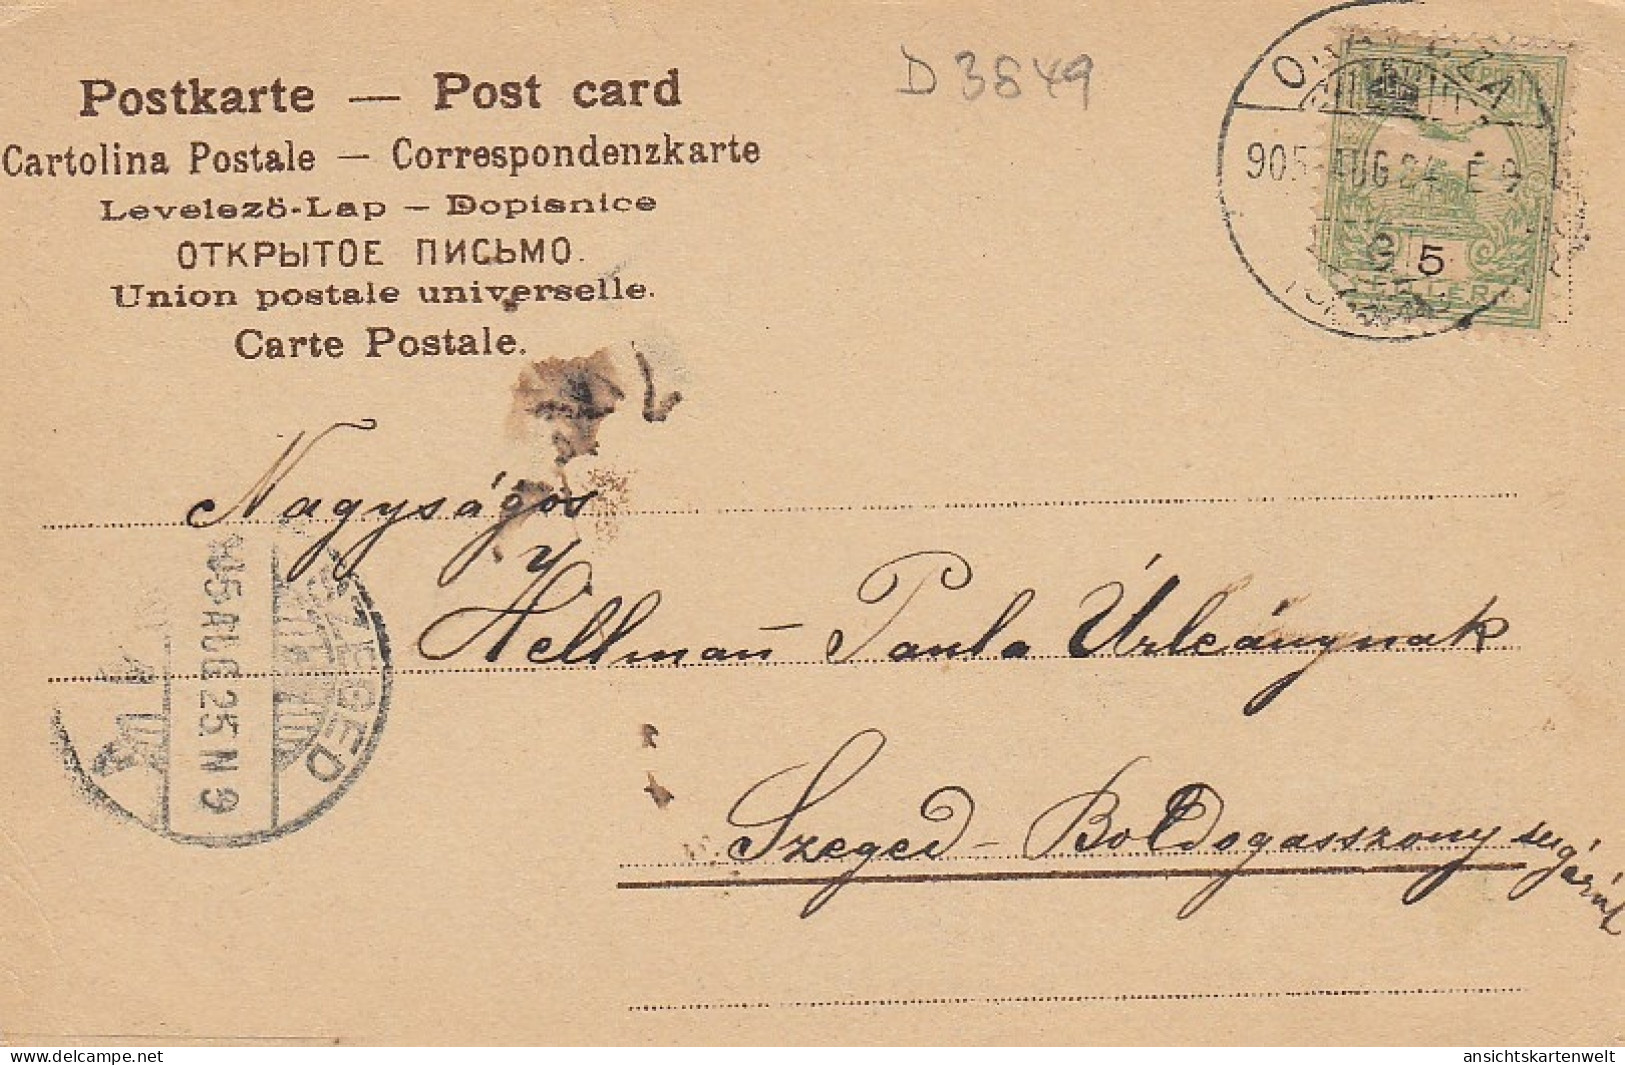 D 3849
Postkarte — Post card
Cartolina Postale — Correspondenzkarte
Levelező-Lap — Dopisnice
ОТКРЫТОЕ ПИСЬМО.
Union postale universelle.
Carte Postale.
905 AUG 24 É 9
5
Nagyságos
Hellman̄ Paula Úrleánynak
Szeged - Boldogasszony
SZEGED
905 AUG 25 N 9
delcampe.net
ansichtskartenwelt